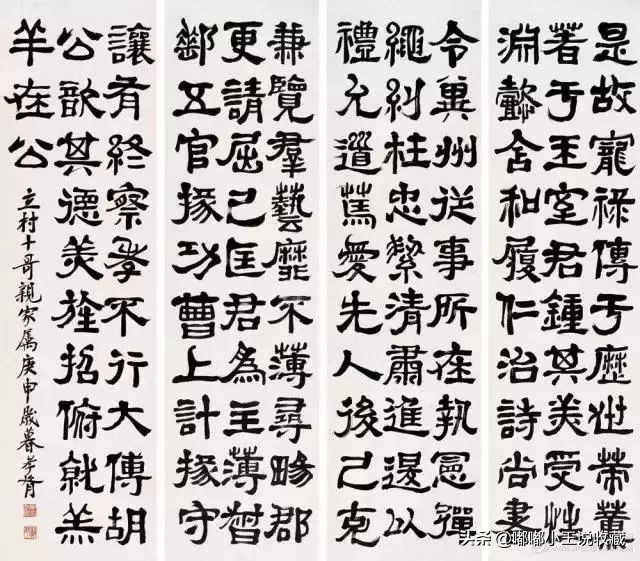 是故寵祿傳于歷世策薰
著于王室君鍾其美受性
淵懿含和履仁治詩尚書
令冀州從事所在執憲彈
繩糾枉忠絜清肅進退以
禮允道篤愛先人後己克
兼覽羣藝靡不薄尋畼郡
更請屈己匡君為主薄督
郵五官掾功曹上計掾守
讓有終察孝不行大傅胡
公歆其德美旌招俯就羔
羊在公
立村十哥親家屬庚申歲暮孝胥
头条 @嘟嘟小王说收藏